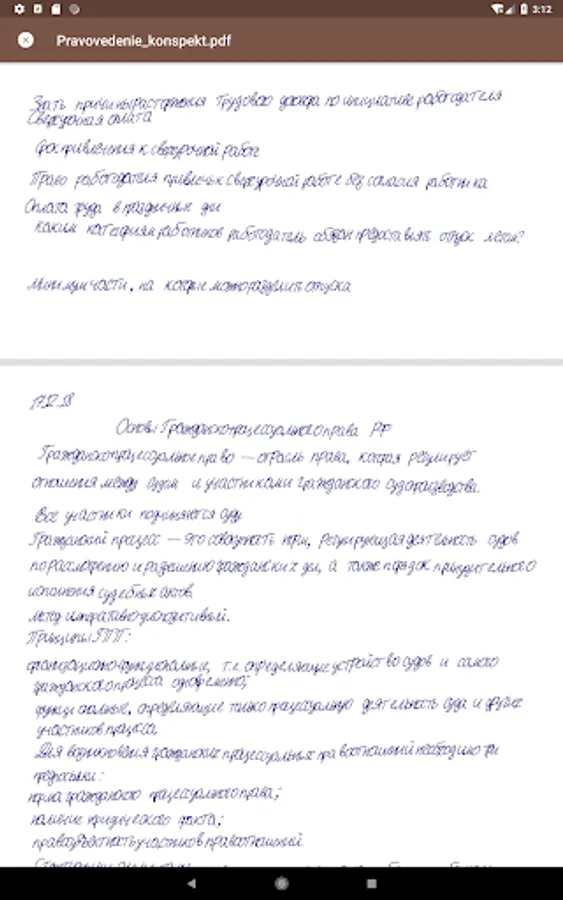 3:12
Pravovedenie_konspekt.pdf
Знать причины расторжения трудового договора по инициативе работодателя
Сверхурочная оплата
Срок привлечения к сверхурочной работе
Право работодателя привлечь к сверхурочной работе без согласия работника
Оплата труда в праздничные дни
Каким категориям работников работодатель обязан предоставлять отпуск летом?
Минимум части, на которые можно разделить отпуска
17.12.18
Основы Гражданско процессуального права РФ
Гражданско процессуальное право — отрасль права, которая регулирует
отношения между судом и участниками гражданского судопроизводства.
Все участники подчиняются суду
Гражданский процесс — это совокупность норм, регулирующая деятельность судов
по рассмотрению и разрешению гражданских дел, а также порядок принудительного
исполнения судебных актов.
метод императивно диспозитивный.
Принципы ГПП:
организационно-функциональные, т.е. определяющие устройство судов и самого
гражданского процесса одновременно;
функциональные, определяющие только процессуальную деятельность суда и других
участников процесса.
Для возникновения гражданских процессуальных правоотношений необходимо три
предпосылки:
норма гражданского процессуального права;
наличие юридического факта;
правосубъектность участников правоотношений.